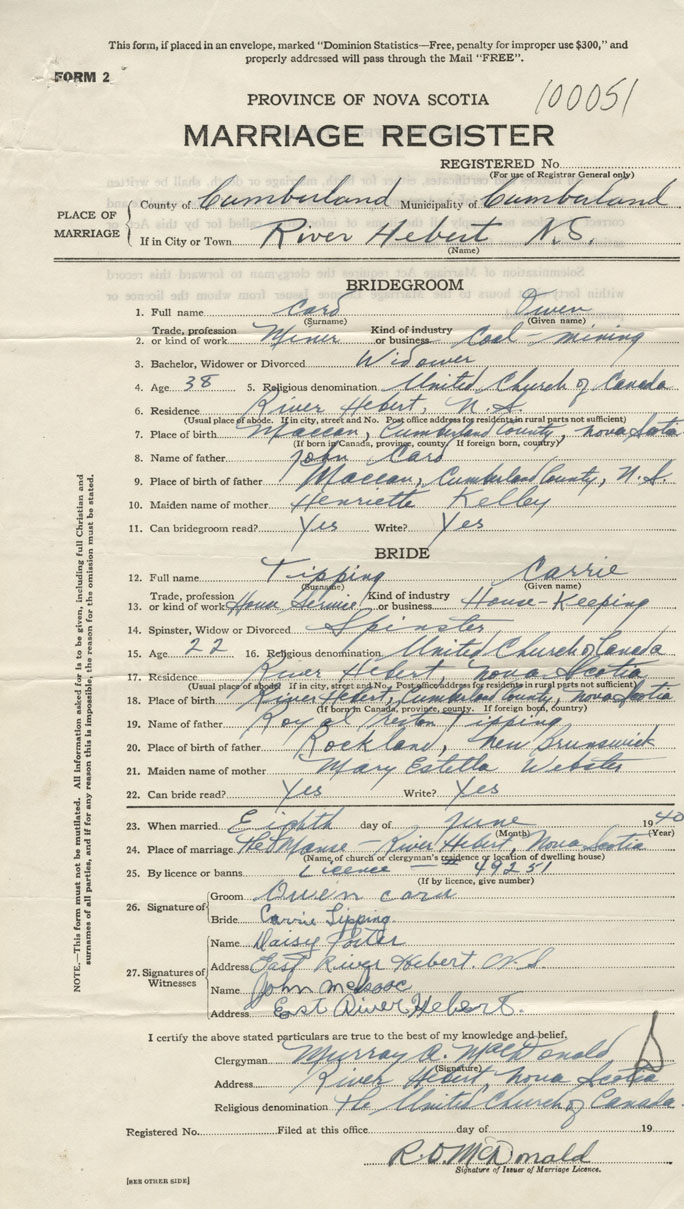 This form, if placed in an envelope, marked "Dominion Statistics—Free, penalty for improper use $300," and
properly addressed will pass through the Mail "FREE".
FORM 2
PROVINCE OF NOVA SCOTIA
100051
MARRIAGE REGISTER
REGISTERED No.
(For use of Registrar General only)
PLACE OF MARRIAGE
County of Cumberland Municipality of Cumberland
If in City or Town River Hebert N.S.
(Name)
BRIDEGROOM
1. Full name Card Owen
(Surname) (Given name)
2. Trade, profession or kind of work Miner Kind of industry or business Coal mining
3. Bachelor, Widower or Divorced Widower
4. Age 38 5. Religious denomination United Church of Canada
6. Residence River Hebert, N.S.
(Usual place of abode. If in city, street and No. Post office address for residents in rural parts not sufficient)
7. Place of birth Maccan, Cumberland County, Nova Scotia
(If born in Canada, province, county. If foreign born, country)
8. Name of father John Card
9. Place of birth of father Maccan, Cumberland County, N.S.
10. Maiden name of mother Henriette Kelley
11. Can bridegroom read? Yes Write? Yes
BRIDE
12. Full name Tipping Carrie
(Surname) (Given name)
13. Trade, profession or kind of work House Service Kind of industry or business House-Keeping
14. Spinster, Widow or Divorced Spinster
15. Age 22 16. Religious denomination United Church of Canada
17. Residence River Hebert, Nova Scotia
(Usual place of abode? If in city, street and No. Post office address for residents in rural parts not sufficient)
18. Place of birth River Hebert, Cumberland County, Nova Scotia
(If born in Canada, province, county. If foreign born, country)
19. Name of father Royal Tipping
20. Place of birth of father Rockland, New Brunswick
21. Maiden name of mother Mary Estella Webster
22. Can bride read? Yes Write? Yes
23. When married Eighth day of June 1940
(Month) (Year)
24. Place of marriage The Manse - River Hebert, Nova Scotia
(Name of church or clergyman's residence or location of dwelling house)
25. By licence or banns Licence - # 49251
(If by licence, give number)
26. Signature of
Groom Owen Card
Bride Carrie Tipping.
27. Signatures of Witnesses
Name Daisy Porter
Address East River Hebert. N.S
Name John McIsaac
Address East River Hebert.
I certify the above stated particulars are true to the best of my knowledge and belief.
Clergyman Murray A. MacDonald
(Signature)
Address River Hebert, Nova Scotia
Religious denomination The United Church of Canada.
Registered No. Filed at this office day of 19
R.D. McDonald
Signature of Issuer of Marriage Licence.
[SEE OTHER SIDE]
NOTE.—This form must not be mutilated. All information asked for is to be given, including full Christian and
surnames of all parties, and if for any reason this is impossible, the reason for the omission must be stated.